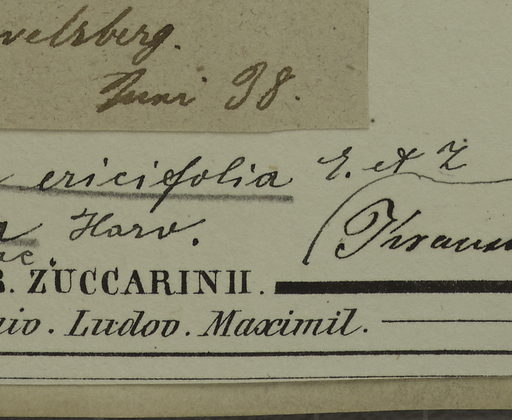 velsberg.
Juni 38.
ericifolia E. et Z
Harv. (Krauss
ac.
R. ZUCCARINII.
uio. Ludov. Maximil.